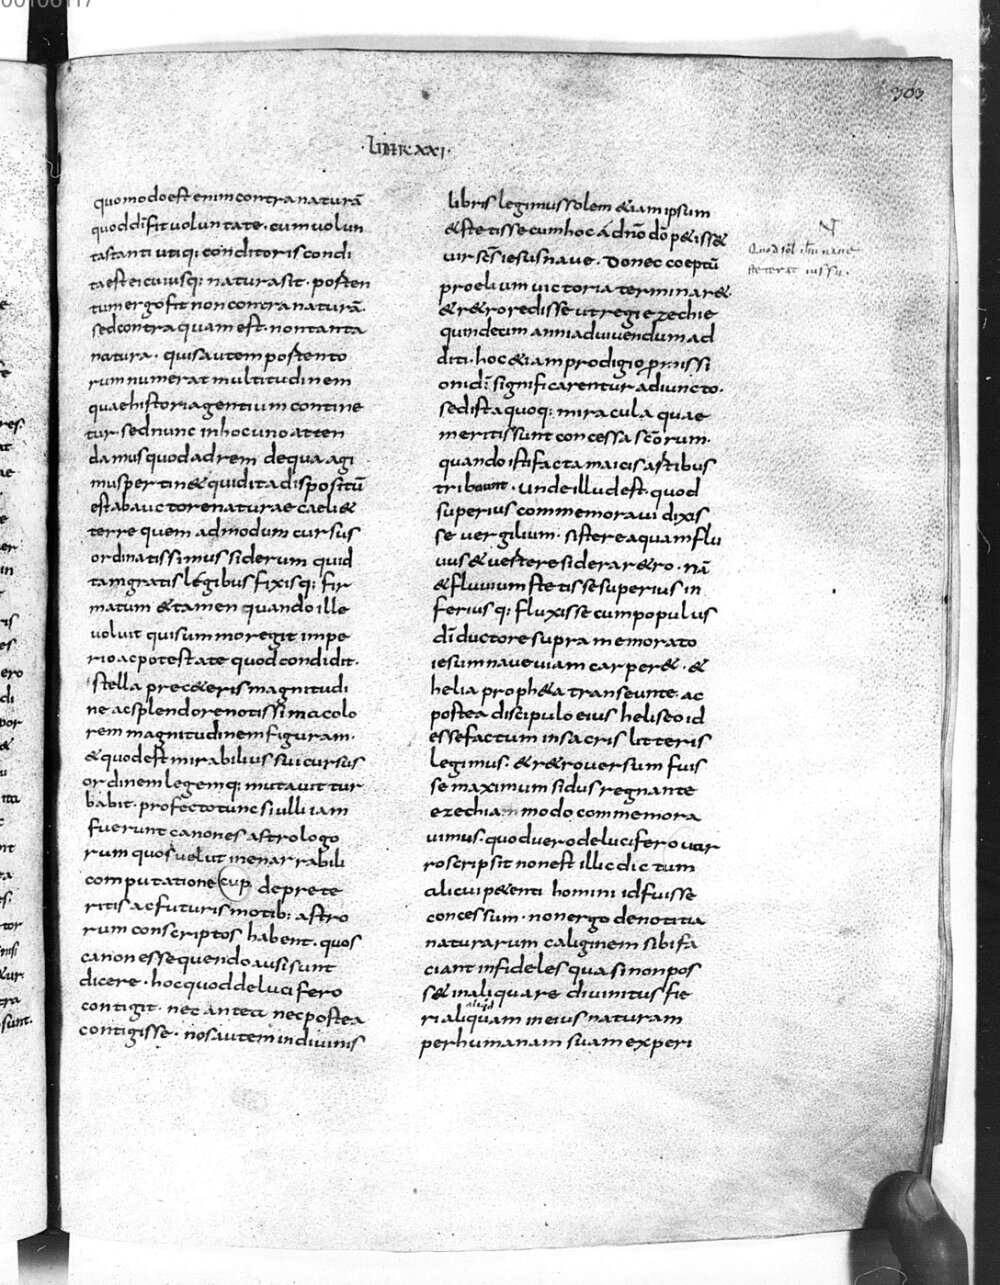 303
·LIBER·XXI·
quomodo est enim contra naturā
quod dī fit voluntate· cum volun
tas tanti utiq; conditoris condi
tae rei cuiusq; natura sit· porten
tum ergo fit non contra naturā·
sed contra quam est nota
natura· quis autem porten to
rum numerat multitudinem
quae historia gentium contine
tur· sed nunc in hoc uno atten
damus quod ad rem de qua agi
mus pertin& quid ita dispositū
est ab auctore naturae caeli &
terre quem admodum cursus
ordinatissimus siderum quid
tam gratis legibus fixisq; fir
matum & tamen quando ille
voluit qui summo regit impe
rio ac potestate quod condidit·
stella prec&eris magnitudi
ne ac splendore notissima colo
rem magnitudinem figuram·
& quod est mirabilius sui cursus
ordinem legemq; mutavit tur
babit· profecto tunc si ulli iam
fuerunt canones astrologo
rum quos velut inenarrabili
computatione cup deprete
ritis ac futuris motib; astro
rum conscriptos habent· quos
canones sequendo ausi sunt
dicere· hoc quod de lucifero
contigit· nec antea nec postea
contigisse· nos autem in divinis
libris legimus solem &iam ipsum
& st&isse cum hoc á dn̄o dō p&iss&
vir sc̄s iesus nave· donec coeptū
proelium victoria terminar&·
& r&ro redisse ut regi ezechie
quindecim anni ad vivendum ad
diti· hoc &iam prodigio promissi
oni dī significarentur adiuncto·
sed ista quoq; miracula quae
meritis sunt concessa sc̄orum·
quando isti facta maicis artibus
tribuunt· unde illud est· quod
superius commemoravi dixis
se vergilium· sistere aquam flu
viis & vertere sidera r&ro· nā
& fluvium st&isse superius in
feriusq; fluxisse cum populus
dī ductore supra memorato
iesum nave viam carper&· &
helia proph&a transeunte· ac
postea discipulo eius heliseo id
esse factum in sacris litteris
legimus· & r&ro versum fuis
se maximum sidus regnante
ezechia· modo commemora
vimus· quod vero de lucifero var
ro scripsit non est illic dictum
alicui p&enti homini id fuisse
concessum· non ergo de notitia
naturarum caliginem sibi fa
ciant infideles quasi non pos
s& in aliqua re divinitus fie
ri aliquam in eius naturam
aliud
per humanam suam experi
N
Quod sol ih̄u nave
steterat iussu·